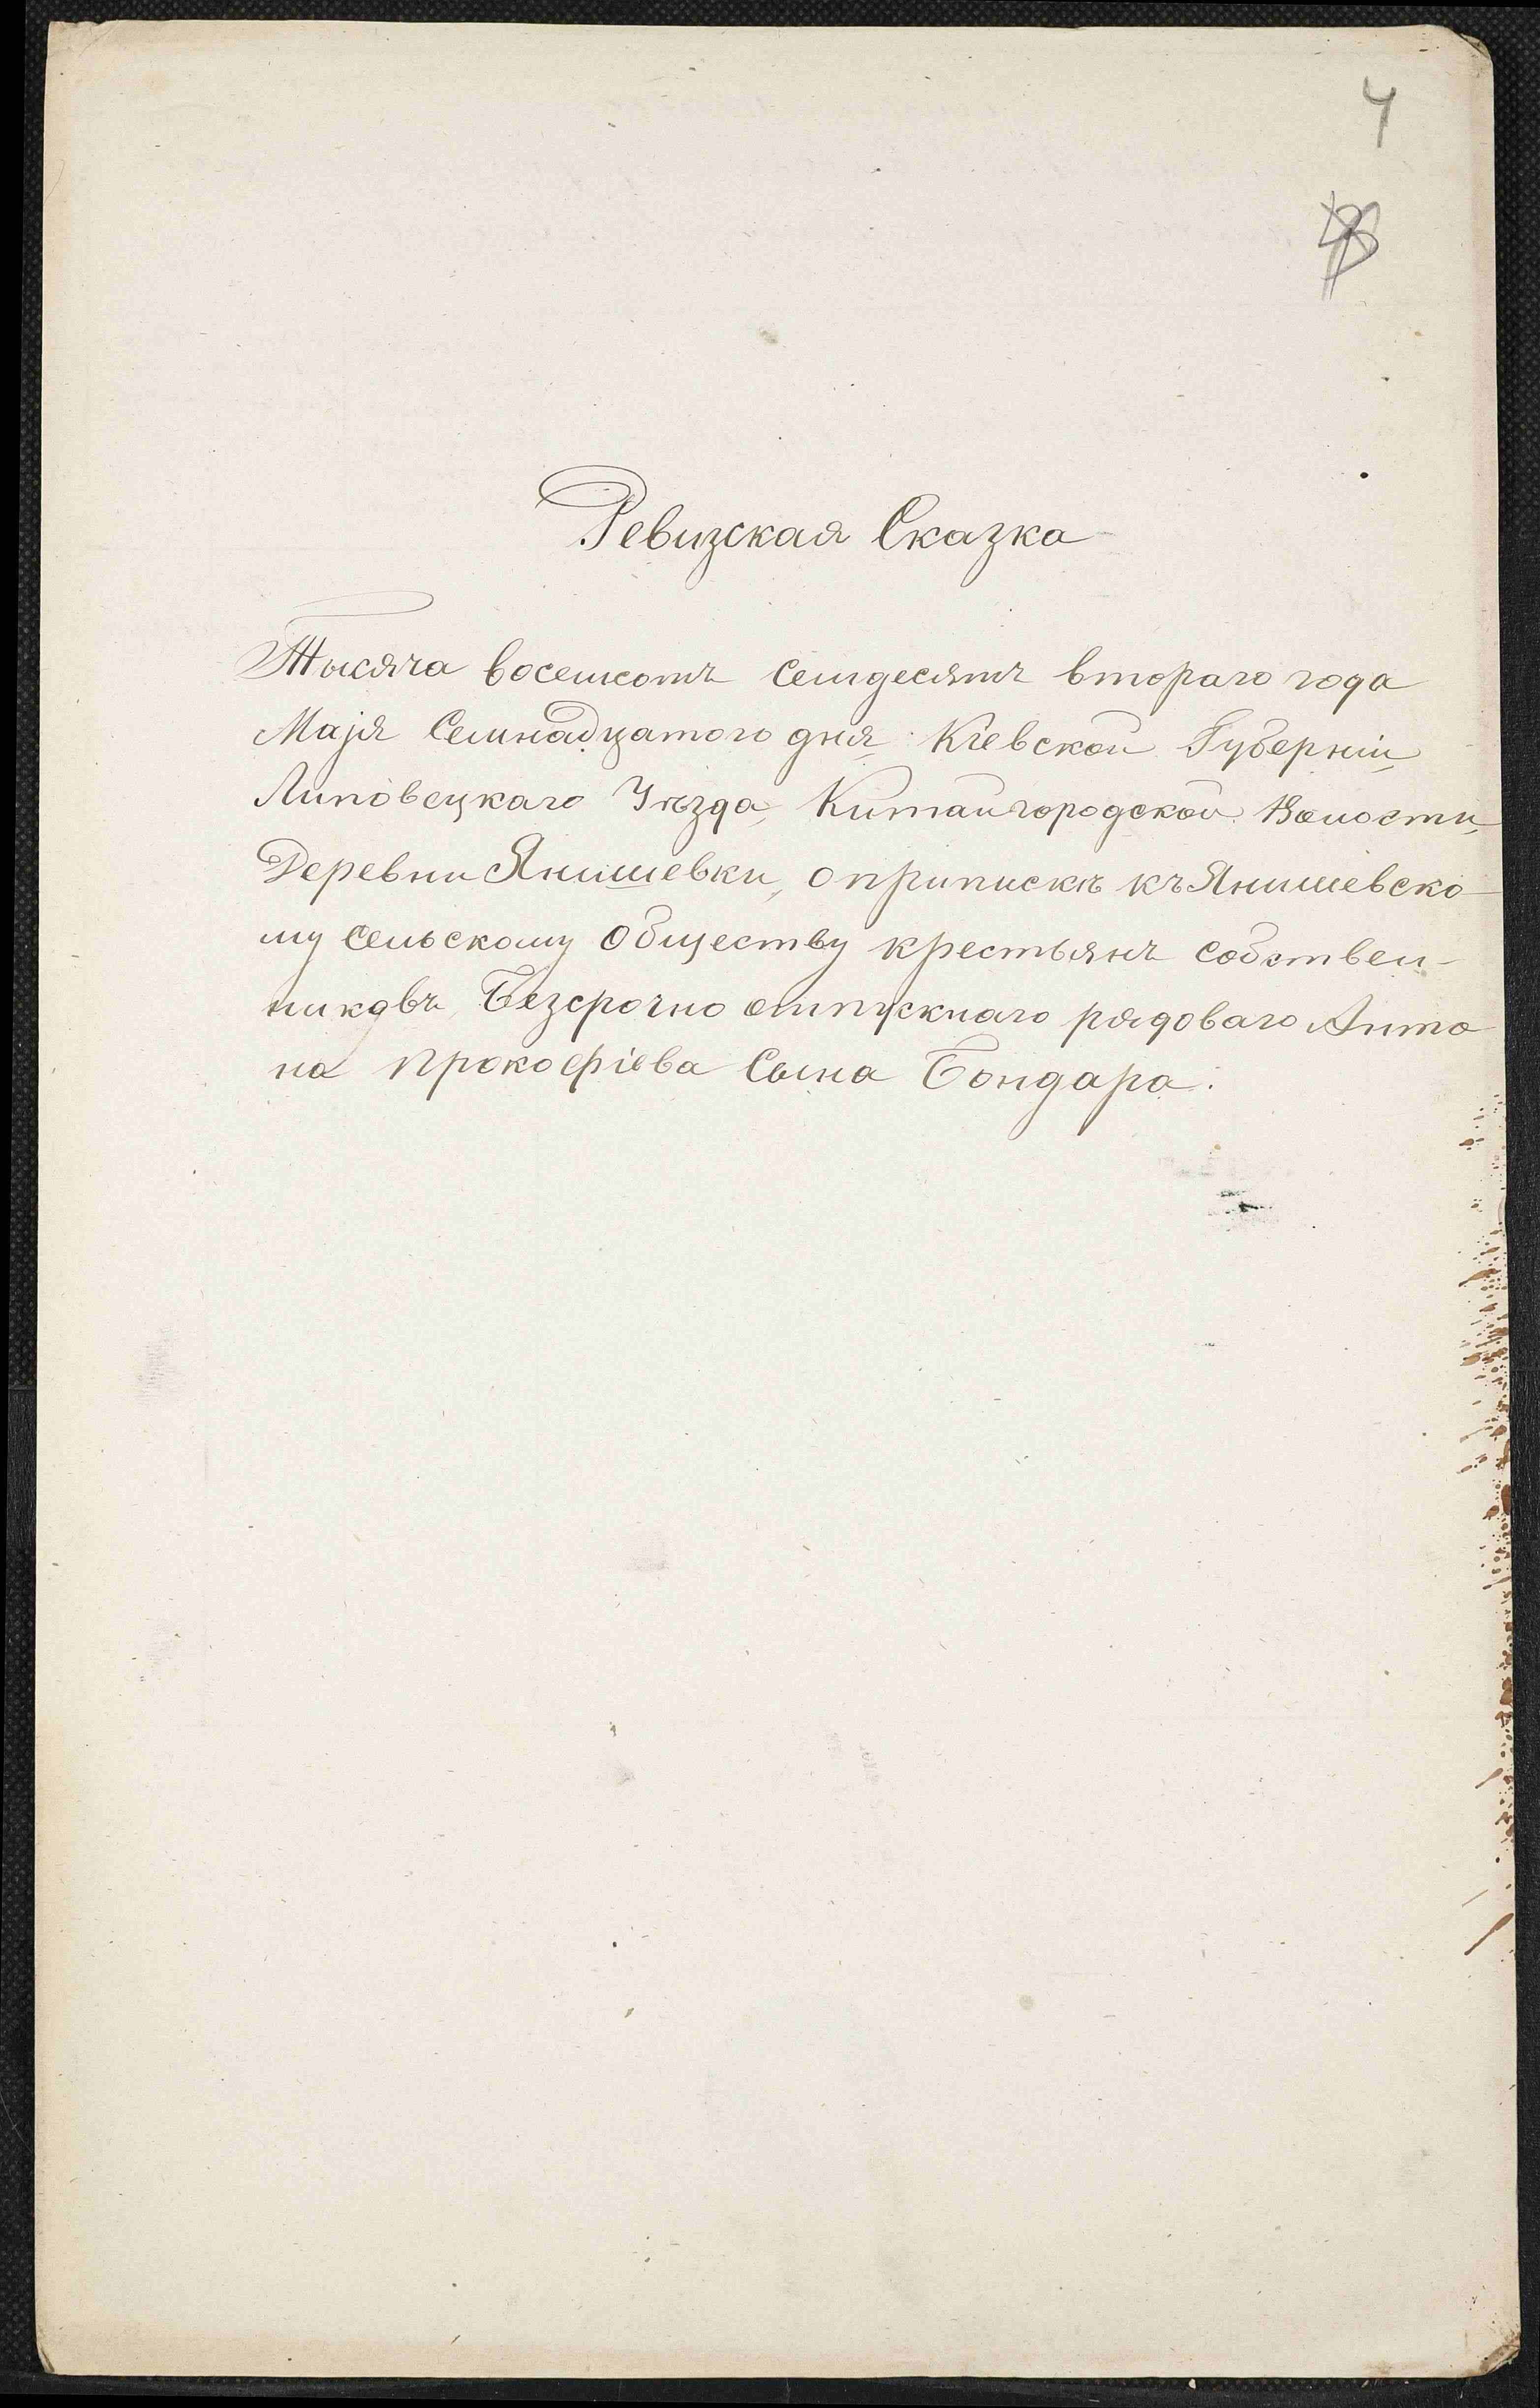 4
Ревизская Сказка
Тысяча восемсотъ семдесятъ втораго года
Маія Семнадцатого дня Кіевской Губерніи,
Липовецкаго Уѣзда, Китайгородской Волости,
Деревни Янишевки, о припискѣ къ Янишевско-
му сельскому Обществу крестьянъ собствен-
никовъ, Безсрочно отпускнаго рядоваго Анто-
на Прокофіева Сына Бондара.